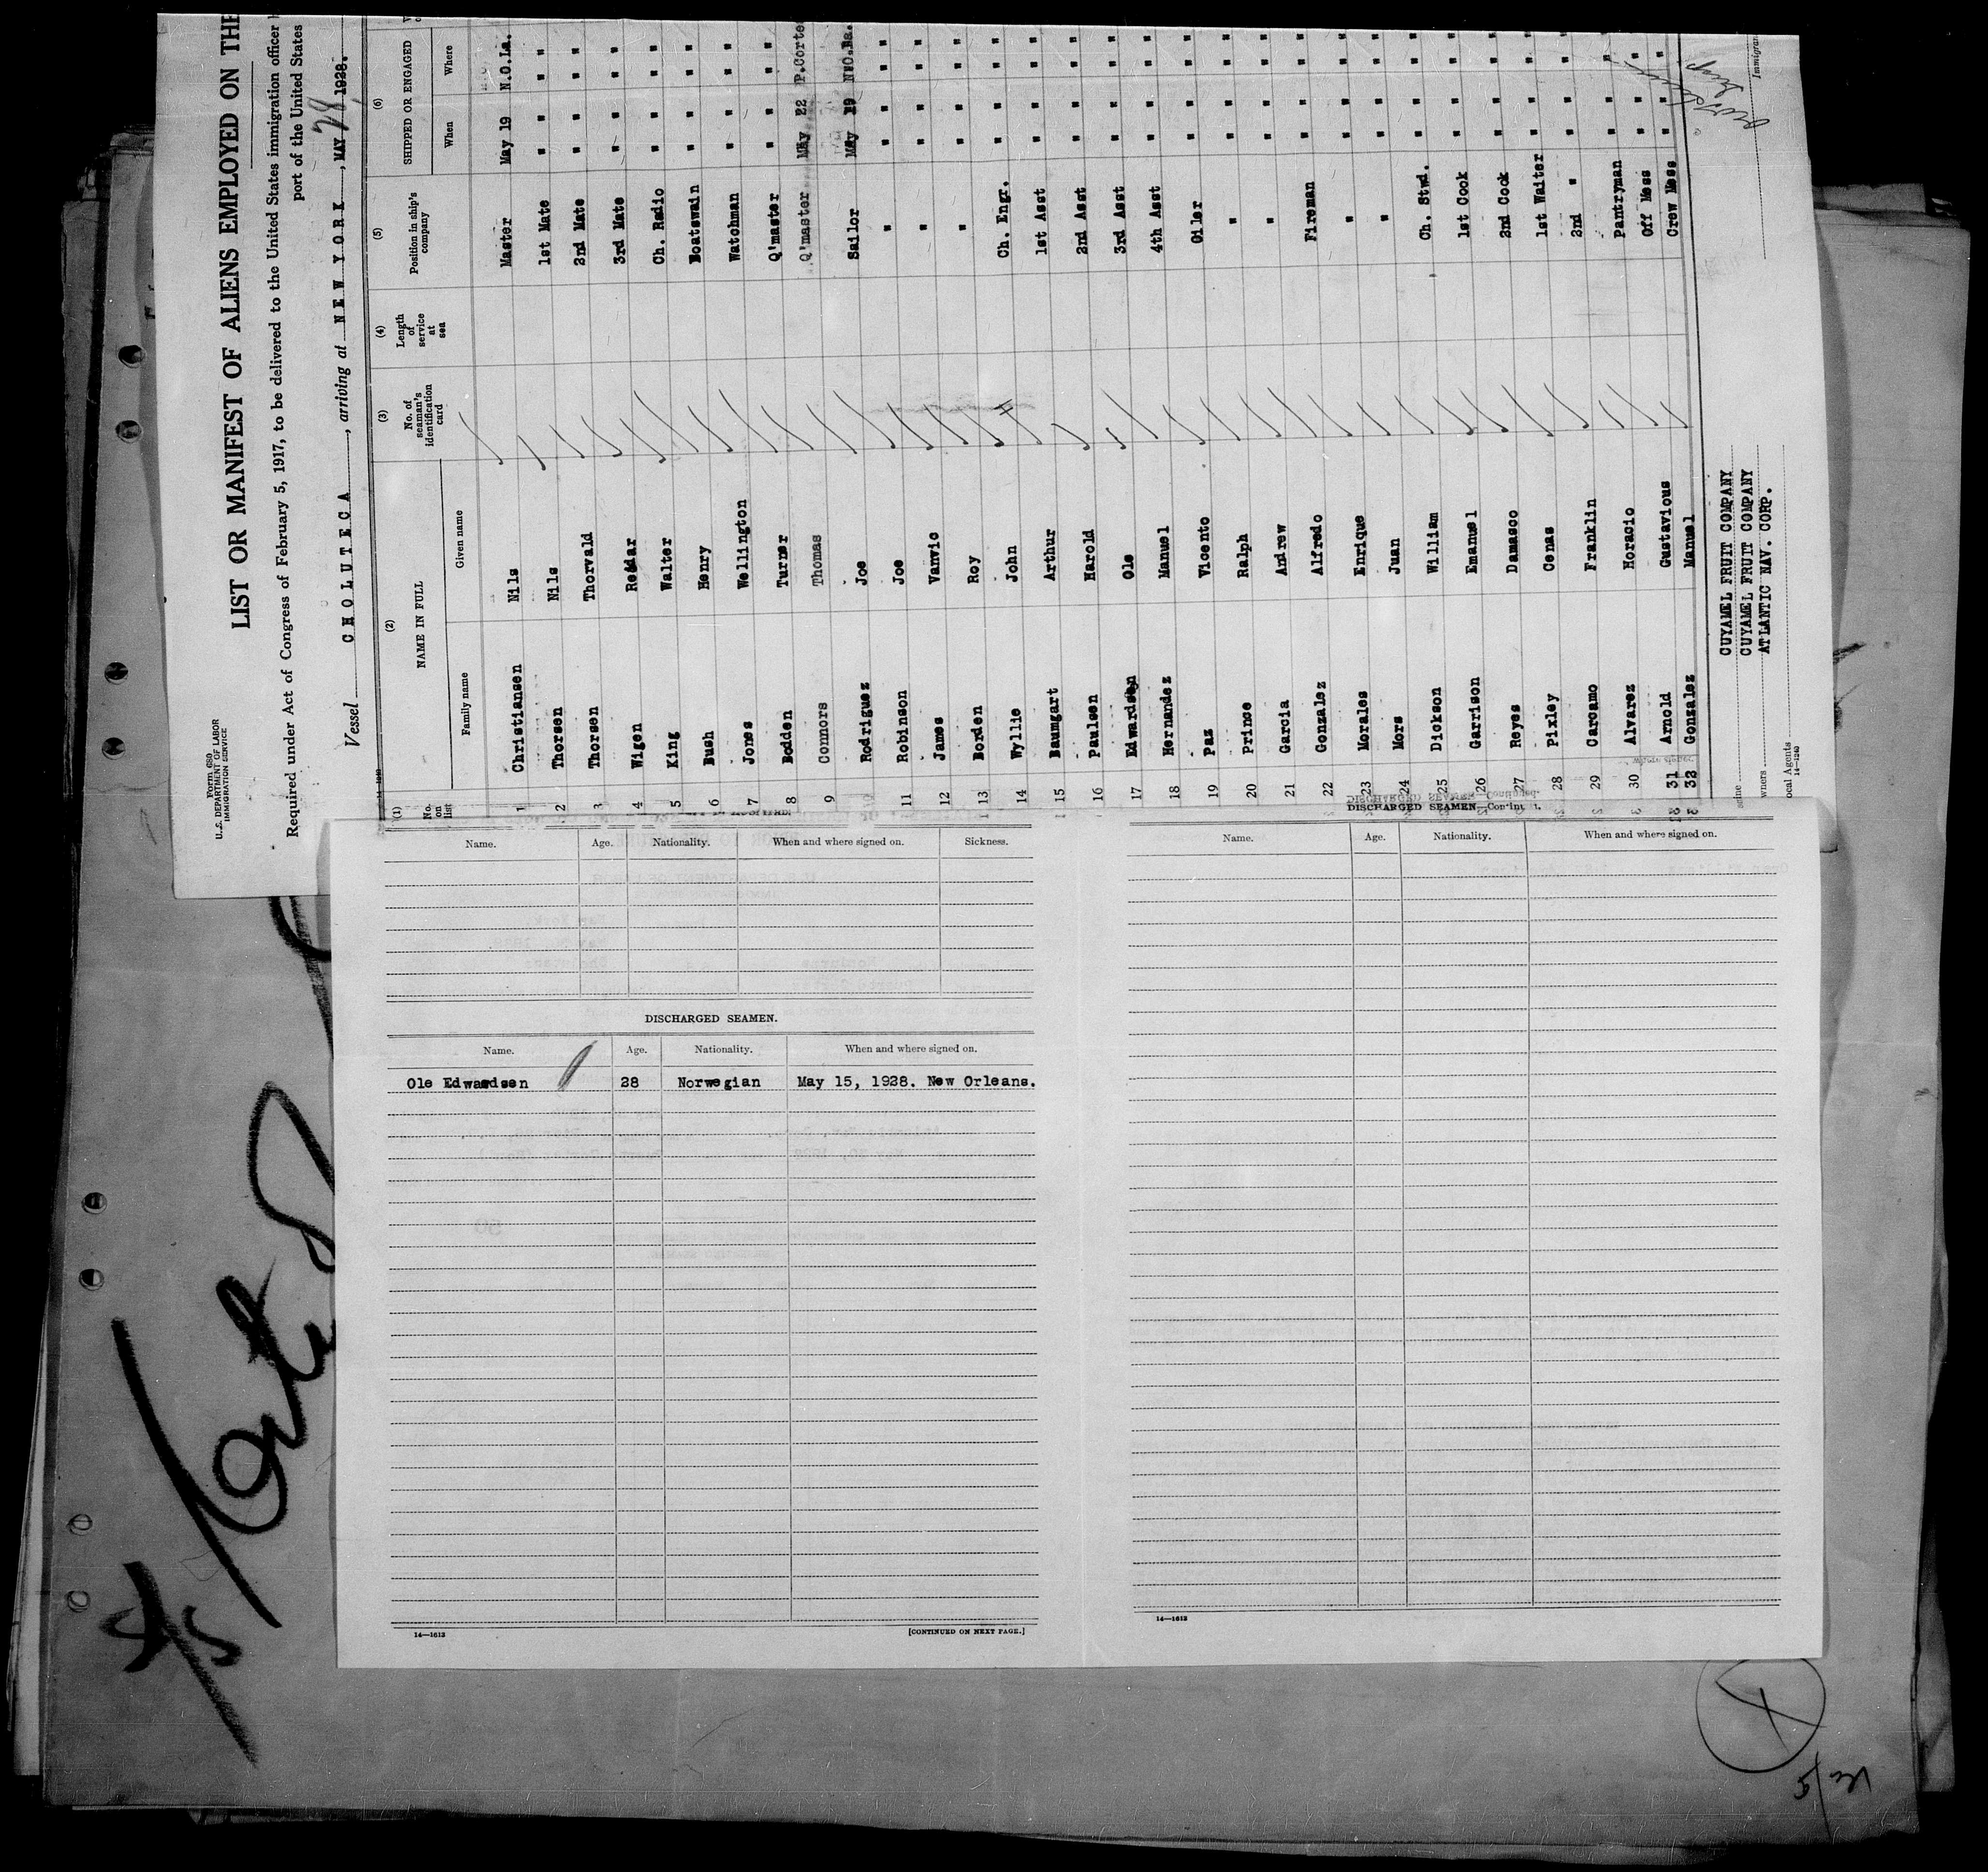 Form 689
U. S. DEPARTMENT OF LABOR
IMMIGRATION SERVICE
LIST OR MANIFEST OF ALIENS EMPLOYED ON THE
Required under Act of Congress of February 5, 1917, to be delivered to the United States immigration officer
port of the United States
Vessel CHOLUTECA, arriving at NEW YORK, MAY 28, 1928.
(1) (2) (3) (4) (5) (6)
No. on list NAME IN FULL No. of seaman's identification card Length of service at sea Position in ship's company SHIPPED OR ENGAGED
Family name Given name When Where
1 Christiansen Nils Master May 19 N.O.La.
2 Thorsen Nils 1st Mate " " " "
3 Thorsen Thorvald 2nd Mate " " " "
4 Wigen Reidar 3rd Mate " " " "
5 King Walter Ch. Radio " " " "
6 Bush Henry Boatswain " " " "
7 Jones Wellington Watchman " " " "
8 Bodden Turner Q'master " " " "
9 Connors Thomas Q'master May 22 P.Corte
Rodriguez Joe Sailor May 19 N.O.La.
11 Robinson Joe " " " " "
12 James Vanwic " " " " "
13 Borden Roy " " " " "
14 Wyllie John Ch. Engr. " " " "
15 Baumgart Arthur 1st Asst " " " "
16 Paulsen Harold 2nd Asst " " " "
17 Edwardsen Ole 3rd Asst " " " "
18 Hernandez Manuel 4th Asst " " " "
19 Paz Vicento Oiler " " " "
20 Prince Ralph " " " " "
21 Garcia Andrew " " " " "
22 Gonzalez Alfredo Fireman " " " "
23 Morales Enrique " " " " "
24 Mors Juan " " " " "
25 Dickson William Ch. Stwd. " " " "
26 Garrison Emanuel 1st Cook " " " "
27 Reyes Damasco 2nd Cook " " " "
28 Pixley Cenas 1st Waiter " " " "
29 Carcamo Franklin 2nd " " " " "
30 Alvarez Horacio Pantryman " " " "
31 Arnold Gustavious Off Mess " " " "
32 Gonzalez Manuel Crew Mess " " " "
CUYAMEL FRUIT COMPANY
wners CUYAMEL FRUIT COMPANY
ocal Agents ATLANTIC NAV. CORP.
14—1240
Immigran
Name. Age. Nationality. When and where signed on. Sickness.
DISCHARGED SEAMEN.
Name. Age. Nationality. When and where signed on.
Ole Edwardsen 28 Norwegian May 15, 1928. New Orleans.
14—1613 [CONTINUED ON NEXT PAGE.]
DISCHARGED SEAMEN—Continued.
Name. Age. Nationality. When and where signed on.
14—1613